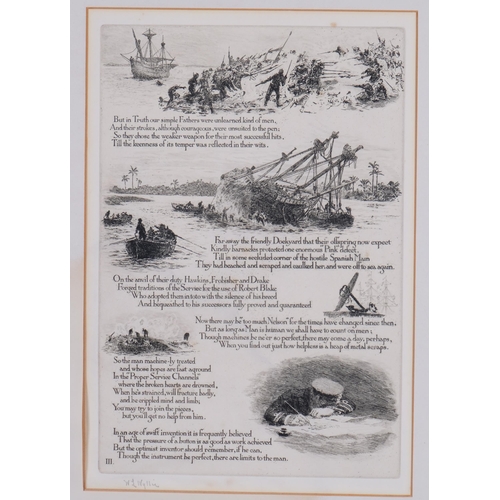 But in Truth our simple Fathers were unlearned kind of men,
And their strokes, although courageous, were unsuited to the pen;
So they chose the weaker weapon for their most successful hits,
Till the keenness of its temper was reflected in their wits.
Far away the friendly Dockyard that their offspring now expect
Kindly barnacles protected one enormous Pink defect,
Till in some secluded corner of the hostile Spanish Main
They had beached and scraped and caulked her and were off to sea again.
On the anvil of their duty Hawkins, Frobisher and Drake
Forged traditions of the Service for the use of Robert Blake
Who adopted them in toto with the silence of his breed
And bequeathed to his successors fully proved and guaranteed
Now there may be too much "Nelson" for the times have changed since then,
But as long as Man is human we shall have to count on men;
Though machines be ne'er so perfect, there may come a day, perhaps,
When you find out just how helpless is a heap of metal scraps.
So the man machine-ly treated
and whose hopes are fast aground
In the "Proper Service Channels"
where the broken hearts are drowned,
When he's strained, will fracture badly,
and be crippled mind and limb;
You may try to join the pieces,
but you'll get no help from him.
In an age of swift invention it is frequently believed
That the pressure of a button is as good as work achieved
But the optimist inventor should remember, if he can,
Though the instrument be perfect, there are limits to the man.
III.